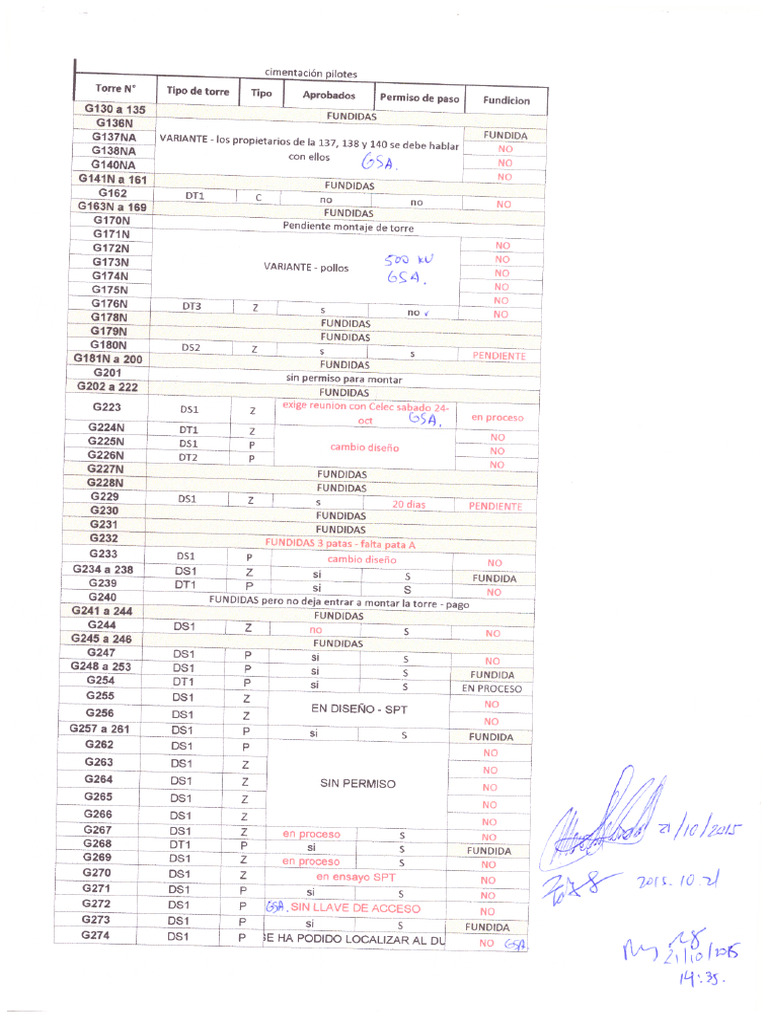 cimentación pilotes
Torre N° Tipo de torre Tipo Aprobados Permiso de paso Fundicion
G130 a 135 FUNDIDAS
G136N FUNDIDA
G137NA VARIANTE - los propietarios de la 137, 138 y 140 se debe hablar NO
G138NA con ellos GSA. NO
G140NA NO
G141N a 161 FUNDIDAS
G162 DT1 C no no NO
G163N a 169 FUNDIDAS
G170N Pendiente montaje de torre
G171N NO
G172N NO
G173N VARIANTE - pollos 500 KV NO
G174N GSA. NO
G175N NO
G176N DT3 Z s no ✓ NO
G178N FUNDIDAS
G179N FUNDIDAS
G180N DS2 Z s s PENDIENTE
G181N a 200 FUNDIDAS
G201 sin permiso para montar
G202 a 222 FUNDIDAS
G223 DS1 Z exige reunion con Celec sabado 24-oct GSA. en proceso
G224N DT1 Z NO
G225N DS1 P cambio diseño NO
G226N DT2 P NO
G227N FUNDIDAS
G228N FUNDIDAS
G229 DS1 Z s 20 dias PENDIENTE
G230 FUNDIDAS
G231 FUNDIDAS
G232 FUNDIDAS 3 patas - falta pata A
G233 DS1 P cambio diseño NO
G234 a 238 DS1 Z si S FUNDIDA
G239 DT1 P si S NO
G240 FUNDIDAS pero no deja entrar a montar la torre - pago
G241 a 244 FUNDIDAS
G244 DS1 Z no S NO
G245 a 246 FUNDIDAS
G247 DS1 P si S NO
G248 a 253 DS1 P si S FUNDIDA
G254 DT1 P si S EN PROCESO
G255 DS1 Z EN DISEÑO - SPT NO
G256 DS1 Z NO
G257 a 261 DS1 P si S FUNDIDA
G262 DS1 P NO
G263 DS1 Z NO
G264 DS1 Z SIN PERMISO NO
G265 DS1 Z NO
G266 DS1 Z NO
G267 DS1 Z en proceso S NO
G268 DT1 P si S FUNDIDA
G269 DS1 Z en proceso S NO
G270 DS1 Z en ensayo SPT NO
G271 DS1 P si S NO
G272 DS1 P GSA. SIN LLAVE DE ACCESO NO
G273 DS1 P si S FUNDIDA
G274 DS1 P SE HA PODIDO LOCALIZAR AL DU NO GSA.
21/10/2015
2015.10.21
21/10/2015
14:35.